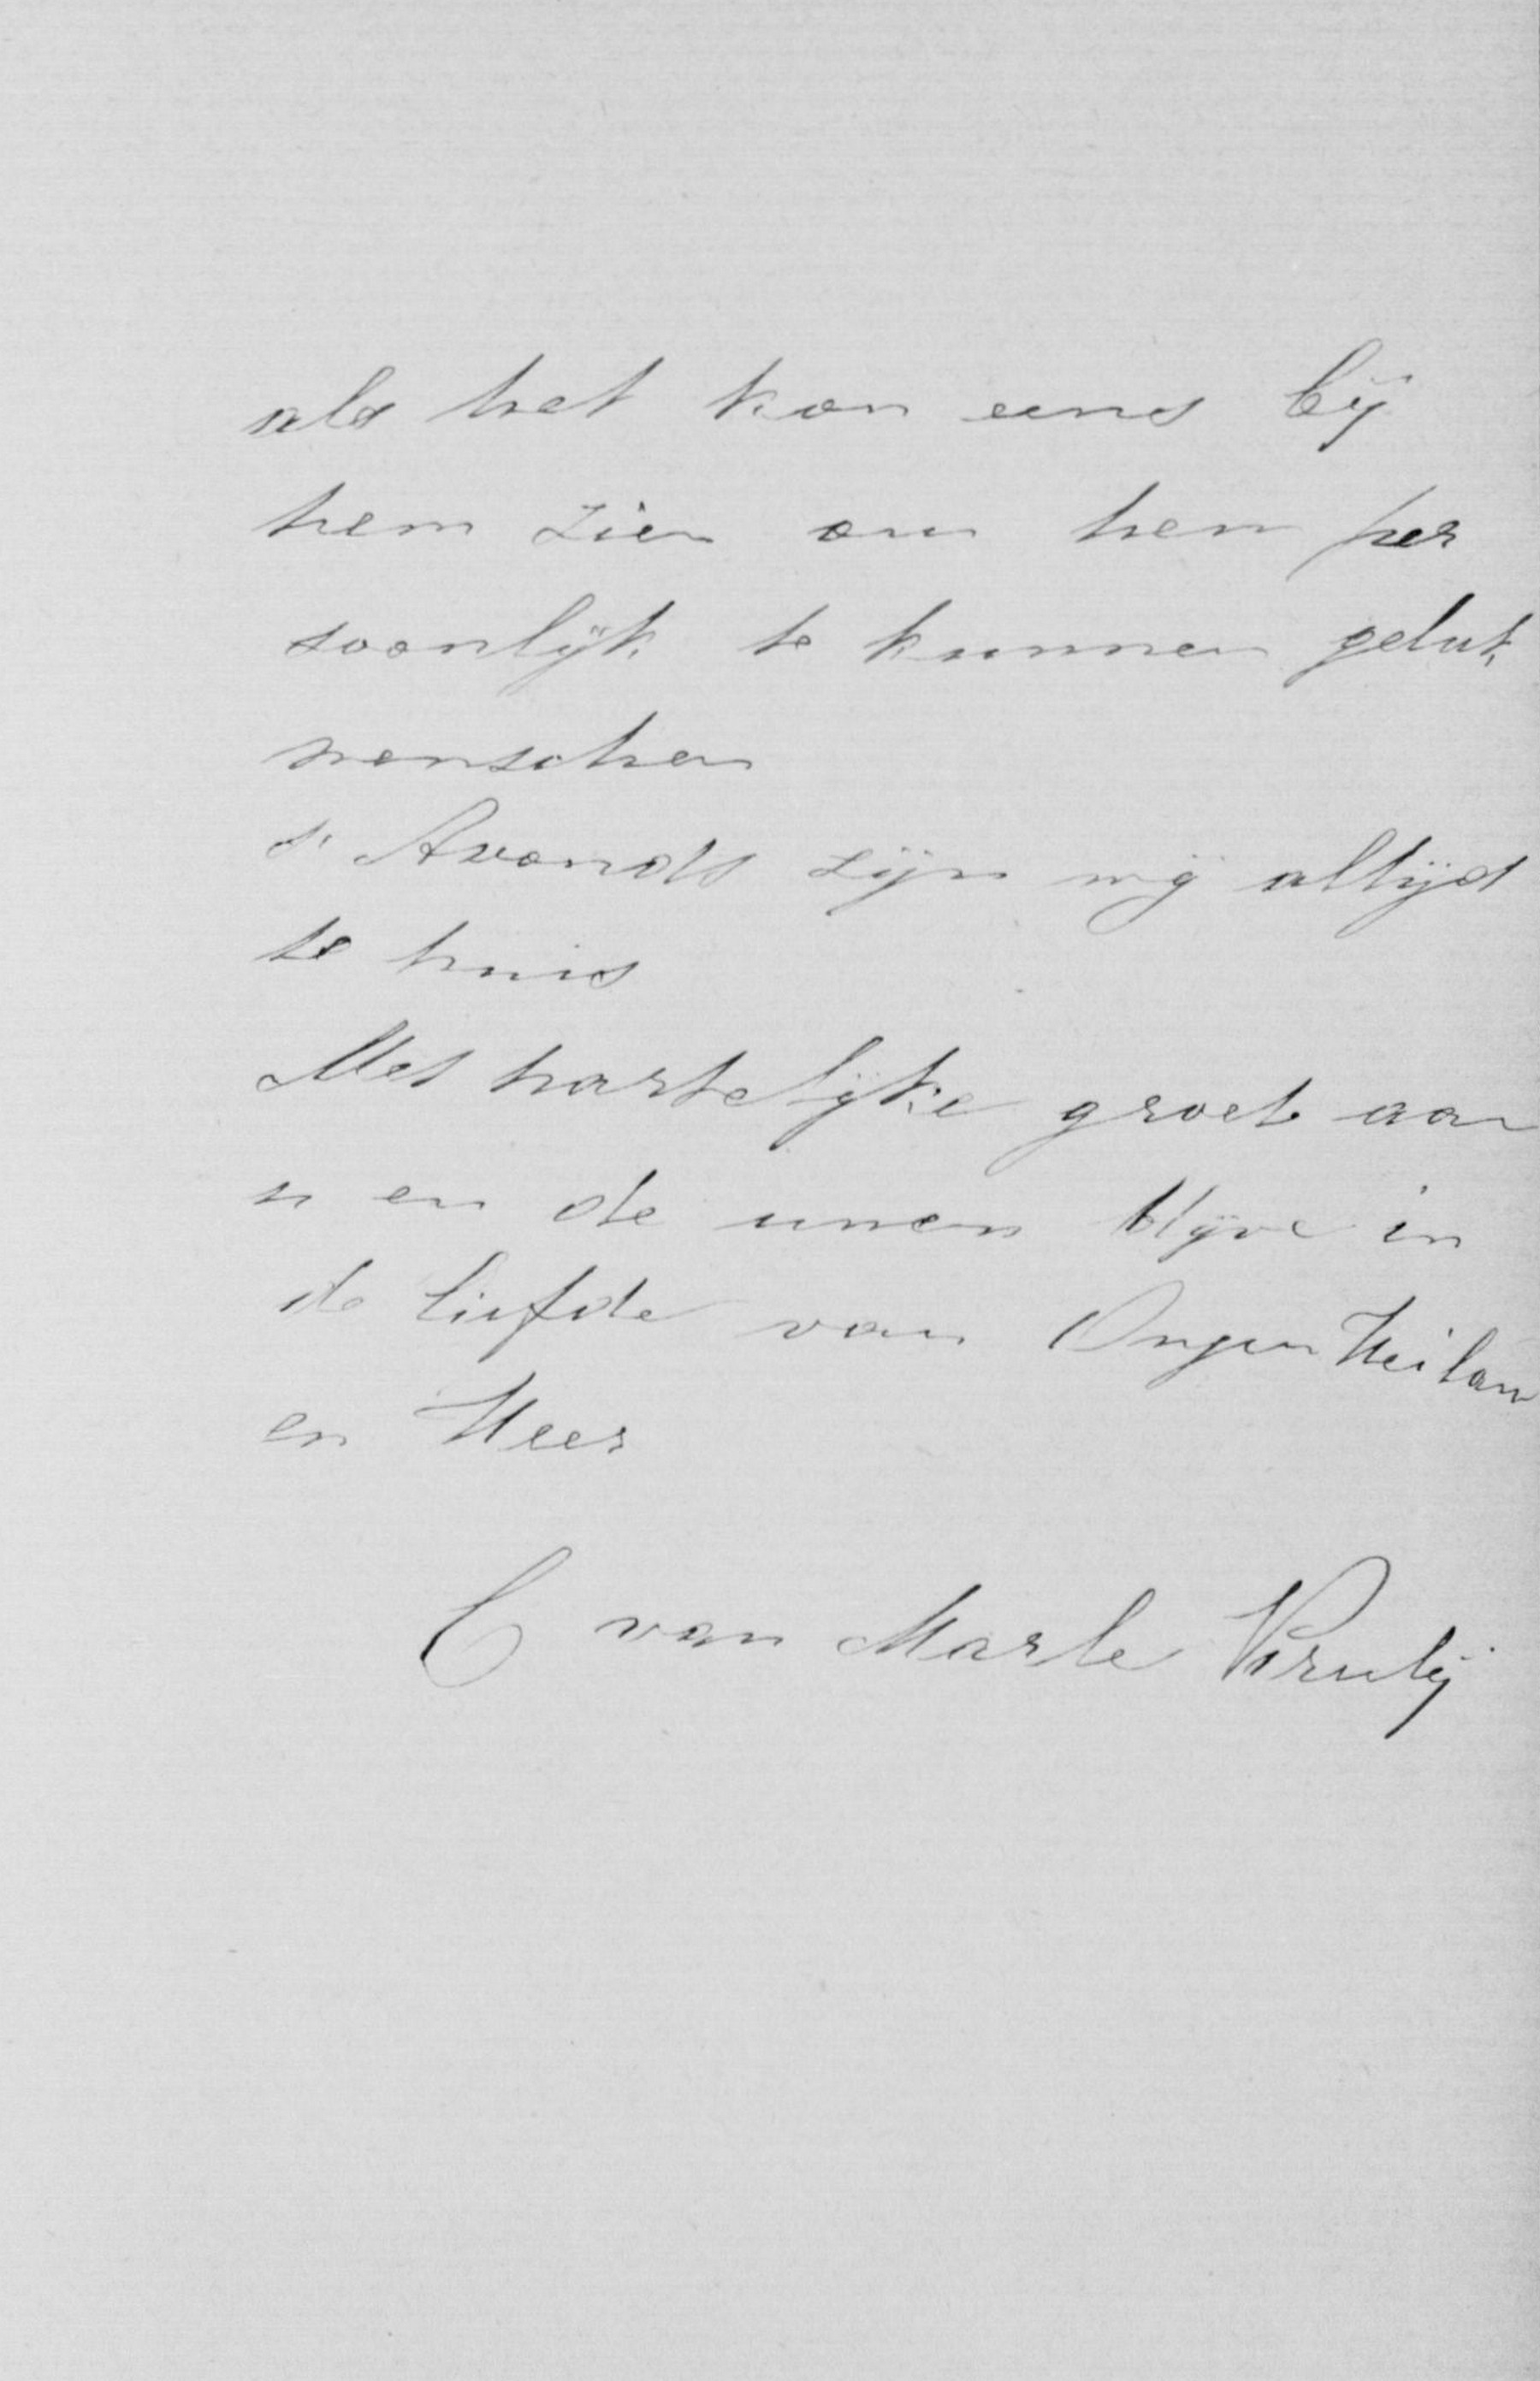 als het kan eens bij
hem zien om hem per
soonlijk te kunnen geluk
wenschen
s' Avonds zijn wij altijd
te huis
Met hartelijke groet aan
u en de uwen blijve in
de liefde van Onzen Heilan
en Heer
C van Marle Viruly